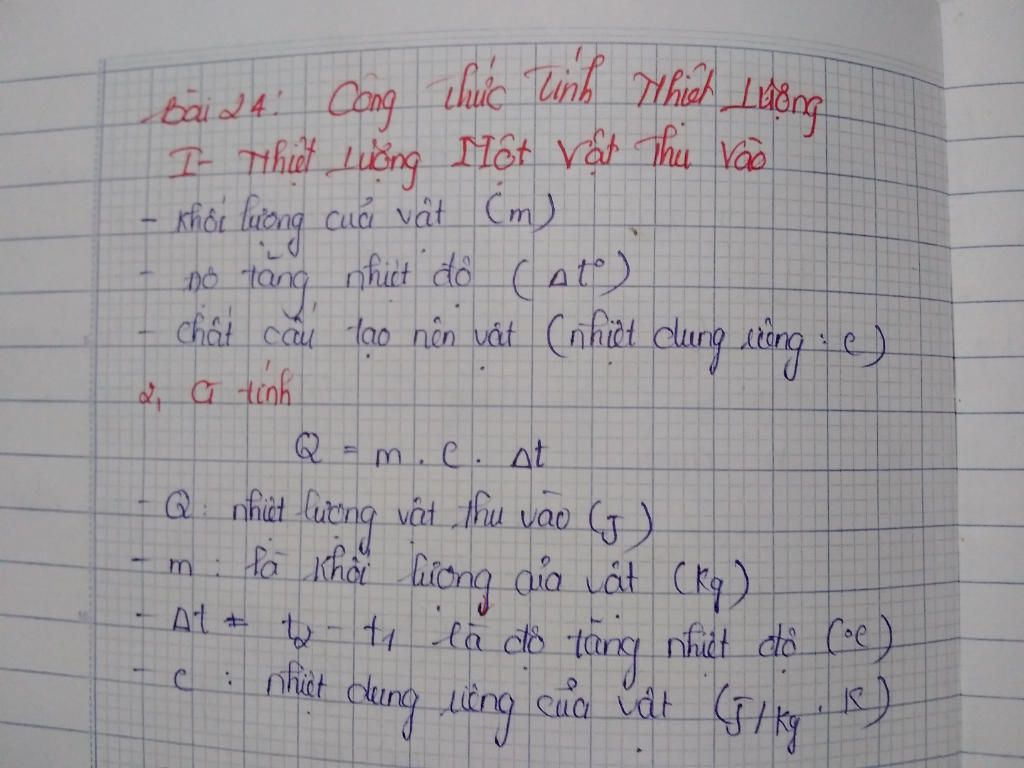 Bài 24: Công Thức Tính Nhiệt Lượng
I- Nhiệt Lượng Một Vật Thu Vào
- Khối lượng của vật (m)
- Độ tăng nhiệt độ (Δt°)
- chất cấu tạo nên vật (nhiệt dung riêng: c)
2, CT tính
Q = m. C. Δt
- Q: nhiệt lượng vật thu vào (J)
- m: là khối lượng của vật (kg)
- Δt = t2 - t1 là độ tăng nhiệt độ (°C)
- c: nhiệt dung riêng của vật (J/kg.K)